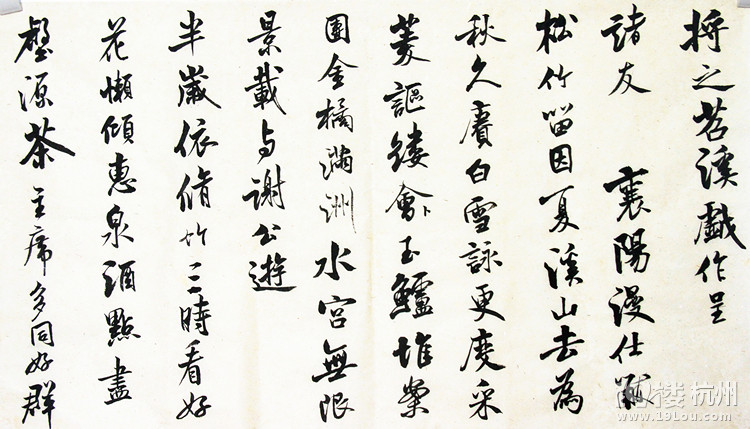 將之苕溪戲作呈
諸友 襄陽漫仕黻
松竹留因夏溪山去為
秋久賡白雪詠更度采
菱謳縷會玉鱸堆案
團金橘滿洲水宮無限
景載与謝公遊
半歲依脩竹三時看好
花懶傾惠泉酒點盡
壑源茶主席多同好群
楼 杭州
www.19lou.com